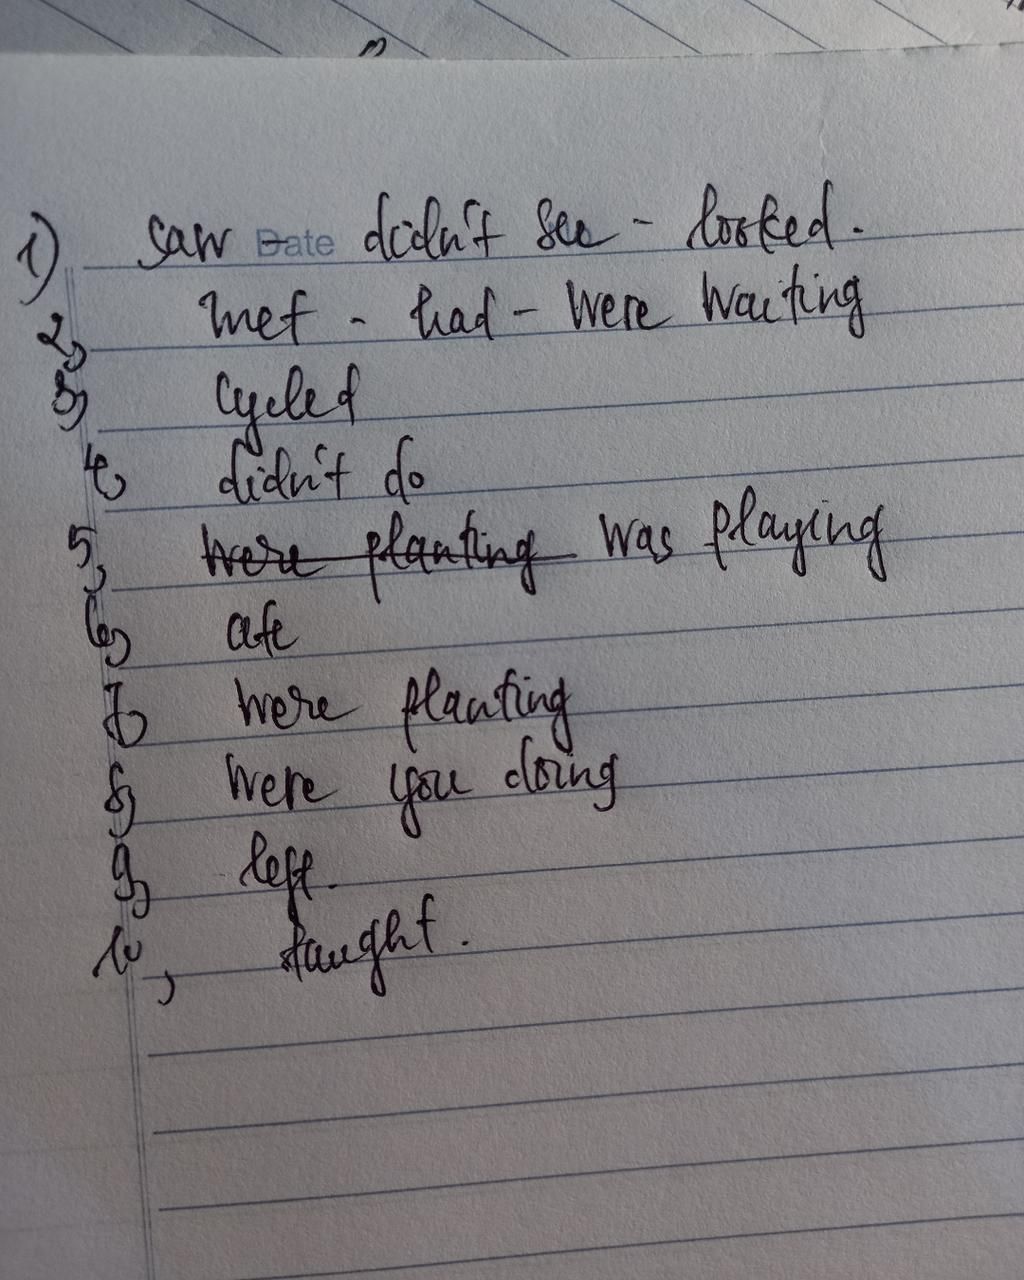 1) saw - Date didn't see - looked.
2, met - had - were waiting
3, cycled
4, didn't do
5, were planting was playing
6, ate
7, were planting
8, were you doing
9, left.
10, taught.